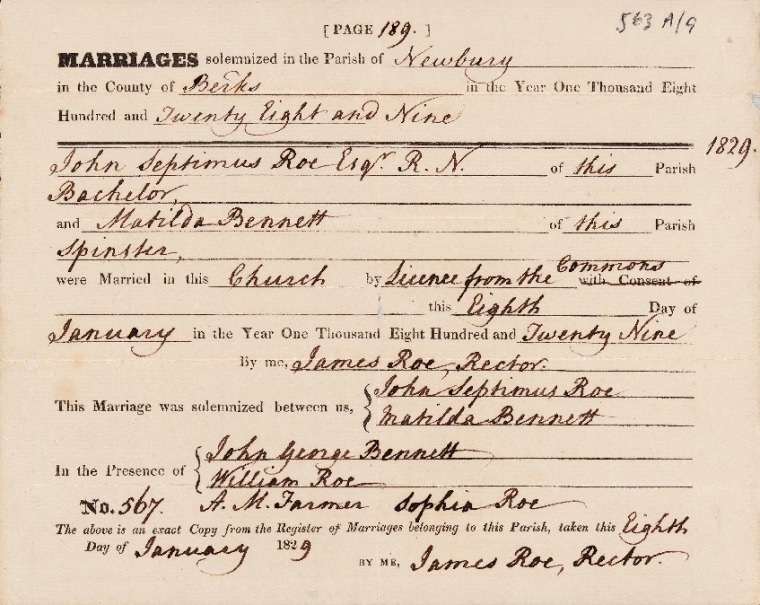 [ PAGE 189. ]
563 A/9
MARRIAGES solemnized in the Parish of Newbury
in the County of Berks in the Year One Thousand Eight
Hundred and Twenty Eight and Nine
1829.
John Septimus Roe Esqr. R. N. of this Parish
Bachelor,
and Matilda Bennett of this Parish
Spinster,
were Married in this Church by Licence from the Commons with Consent of
this Eighth Day of
January in the Year One Thousand Eight Hundred and Twenty Nine
By me, James Roe, Rector.
This Marriage was solemnized between us, { John Septimus Roe
Matilda Bennett
In the Presence of { John George Bennett
William Roe
No. 567. A. M. Farmer Sophia Roe
The above is an exact Copy from the Register of Marriages belonging to this Parish, taken this Eighth
Day of January 1829
BY ME, James Roe, Rector.